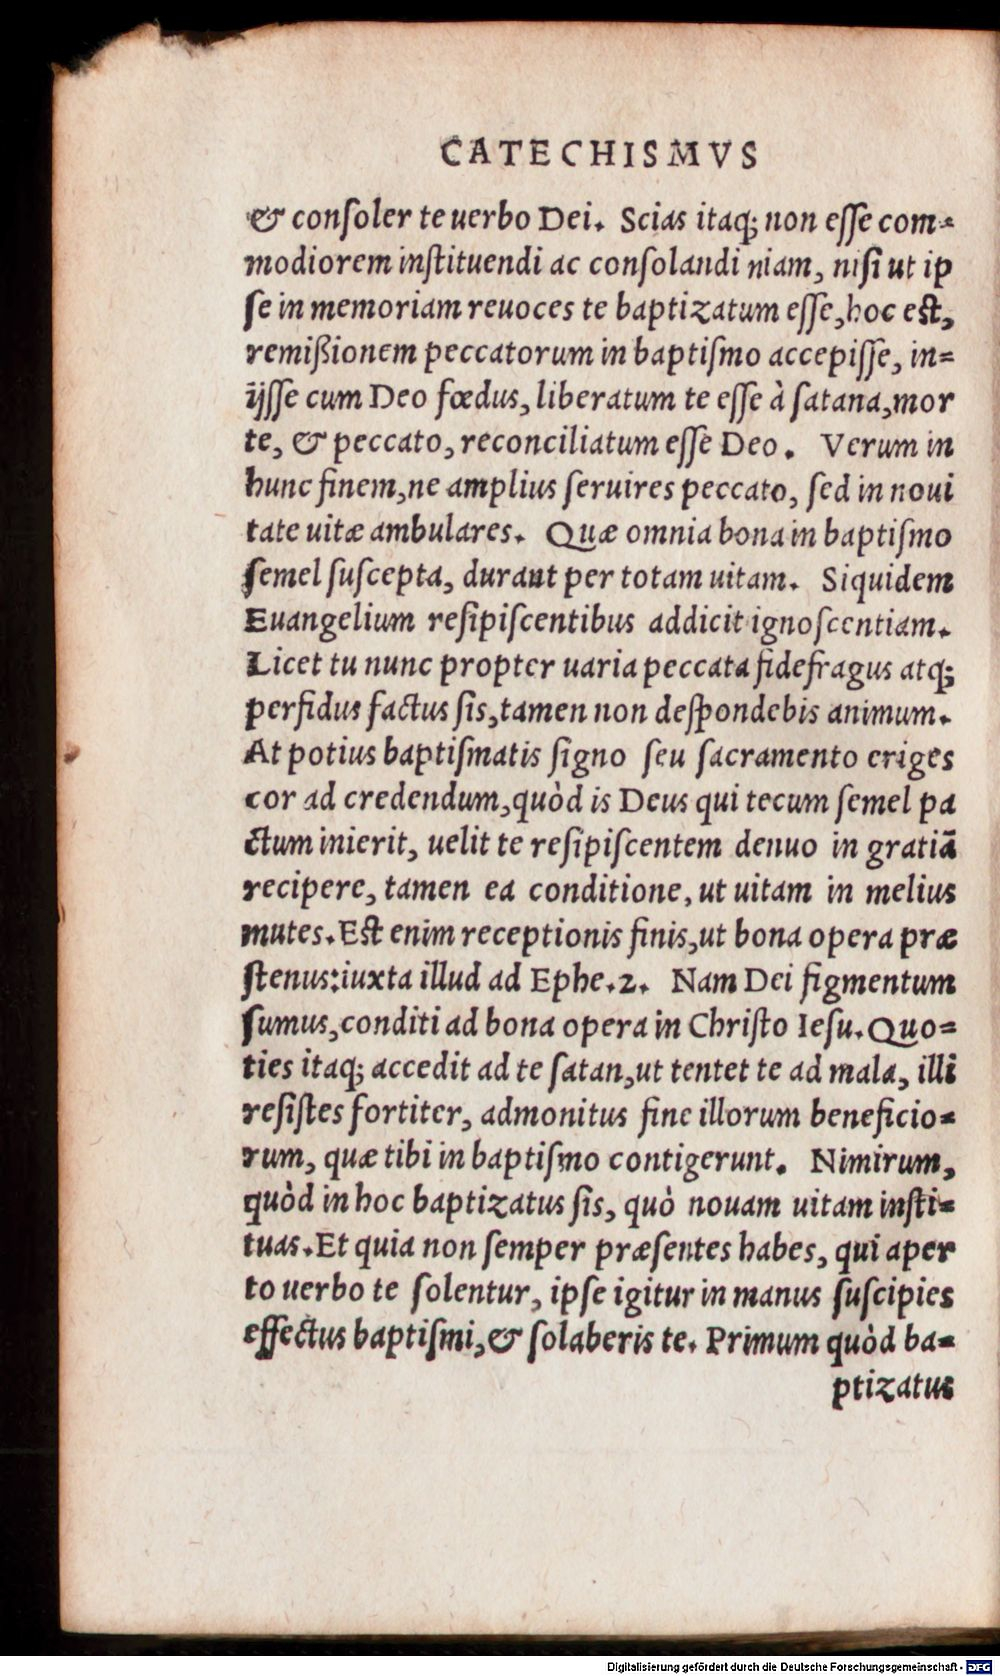 CATECHISMVS
& conſoler te uerbo Dei. Scias itaq; non eſſe com=
modiorem inſtituendi ac conſolandi niam, niſi ut ip
ſe in memoriam reuoces te baptizatum eſſe, hoc eſt,
remißionem peccatorum in baptiſmo accepiſſe, in=
ijſſe cum Deo fœdus, liberatum te eſſe à ſatana, mor
te, & peccato, reconciliatum eſſe Deo. Verum in
hunc finem, ne amplius ſeruires peccato, ſed in noui
tate uitæ ambulares. Quæ omnia bona in baptiſmo
ſemel ſuſcepta, durant per totam uitam. Siquidem
Euangelium reſipiſcentibus addicit ignoſcentiam.
Licet tu nunc propter uaria peccata fidefragus atq;
perfidus factus ſis, tamen non deſpondebis animum.
At potius baptiſmatis ſigno ſeu ſacramento eriges
cor ad credendum, quòd is Deus qui tecum ſemel pa
ctum inierit, uelit te reſipiſcentem denuo in gratiā
recipere, tamen ea conditione, ut uitam in melius
mutes. Eſt enim receptionis finis, ut bona opera præ
ſtenus: iuxta illud ad Ephe. 2. Nam Dei figmentum
ſumus, conditi ad bona opera in Chriſto Ieſu. Quo=
ties itaq; accedit ad te ſatan, ut tentet te ad mala, illi
reſiſtes fortiter, admonitus fine illorum beneficio=
rum, quæ tibi in baptiſmo contigerunt. Nimirum,
quòd in hoc baptizatus ſis, quò nouam uitam inſti=
tuas. Et quia non ſemper præſentes habes, qui aper
to uerbo te ſolentur, ipſe igitur in manus ſuſcipies
effectus baptiſmi, & ſolaberis te. Primum quòd ba=
ptizatus
Digitalisierung gefördert durch die Deutsche Forschungsgemeinschaft - DFG